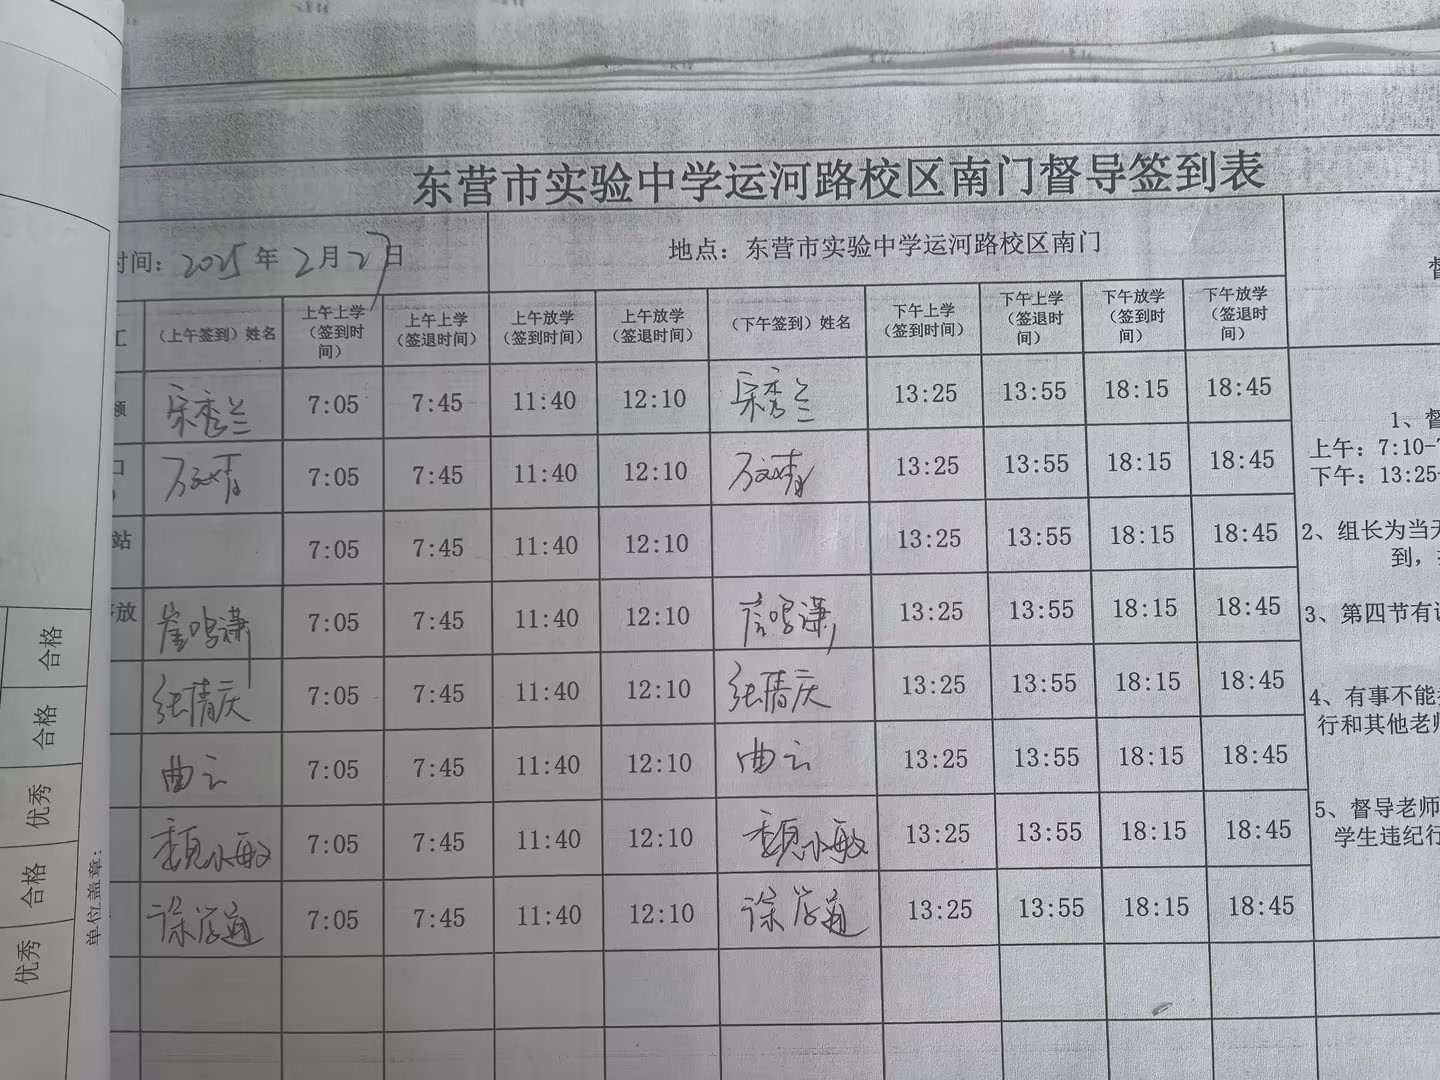 东营市实验中学运河路校区南门督导签到表
时间：2025年2月27日
地点：东营市实验中学运河路校区南门
督
工 （上午签到）姓名 上午上学（签到时间） 上午上学（签退时间） 上午放学（签到时间） 上午放学（签退时间） （下午签到）姓名 下午上学（签到时间） 下午上学（签退时间） 下午放学（签到时间） 下午放学（签退时间）
宋秀兰 7:05 7:45 11:40 12:10 宋秀兰 13:25 13:55 18:15 18:45
口 万文婧 7:05 7:45 11:40 12:10 万文婧 13:25 13:55 18:15 18:45
站 7:05 7:45 11:40 12:10 13:25 13:55 18:15 18:45
放 崔鸣潇 7:05 7:45 11:40 12:10 崔鸣潇 13:25 13:55 18:15 18:45
张倩庆 7:05 7:45 11:40 12:10 张倩庆 13:25 13:55 18:15 18:45
曲云 7:05 7:45 11:40 12:10 曲云 13:25 13:55 18:15 18:45
魏小敏 7:05 7:45 11:40 12:10 魏小敏 13:25 13:55 18:15 18:45
徐学通 7:05 7:45 11:40 12:10 徐学通 13:25 13:55 18:15 18:45
1、督
上午：7:10-7
下午：13:25-
2、组长为当天
到，
3、第四节有
4、有事不能
行和其他老师
5、督导老师
学生违纪行
合格
合格
优秀
合格
优秀
单位盖章：